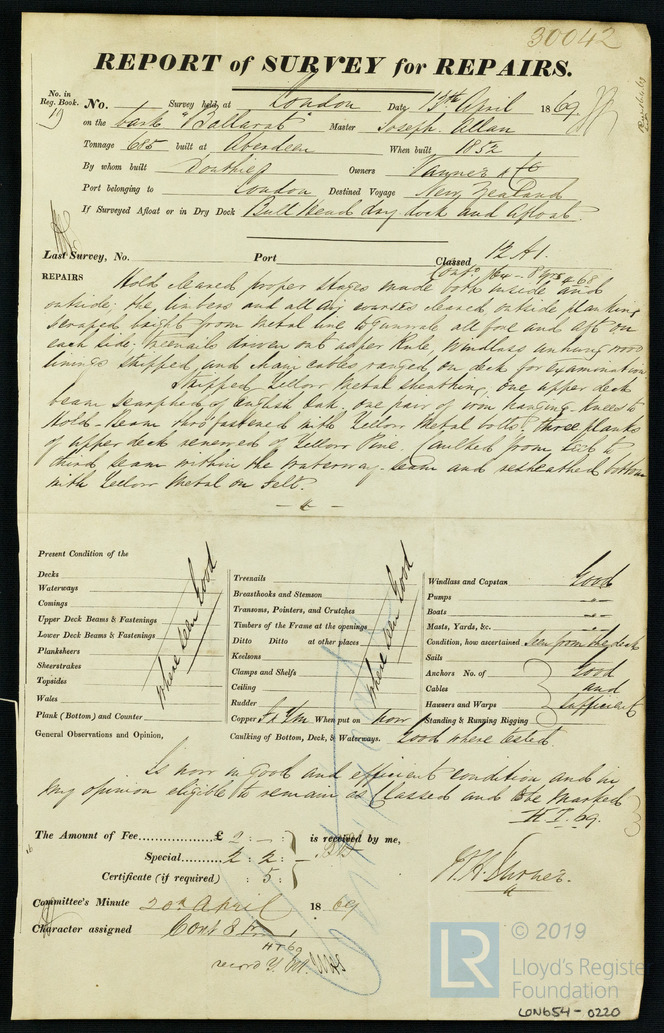 30042
REPORT of SURVEY for REPAIRS.
No. in Reg. Book. 19 No. Survey held at London Date, 13th April 1869
on the bark "Ballarat" Master Joseph Allan
Tonnage 685 built at Aberdeen When built 1852
By whom built Duthie Owners & Co
Port belonging to London Destined Voyage New Zealand
If Surveyed Afloat or in Dry Dock Bull Head dry dock and Afloat.
Last Survey, No. Port Classed 12 A1.
Contd. 8 yrs 68
REPAIRS Hold cleared proper stages made both inside and
outside; the limbers and all air courses cleared, outside planking
scraped bright from metal line to Gunwale all fore and aft on
each side: treenails driven out as per Rule, Windlass unhung wood
linings stripped, and chain cables ranged on deck for examination
Stripped Yellow Metal sheathing, one upper deck
beam scarphed of English Oak. one pair of iron hanging knees to
Hold-Beam thro' fastened with Yellow Metal bolts: three planks
of upper deck renewed of Yellow Pine. Caulked from keel to
third seam within the waterway-seam and resheathed bottom
with Yellow Metal on Felt.
Present Condition of the
Decks
Waterways
Comings
Upper Deck Beams & Fastenings
Lower Deck Beams & Fastenings
Planksheers
Sheerstrakes
Topsides
Wales
Plank (Bottom) and Counter
where seen Good
General Observations and Opinion,
Treenails
Breasthooks and Stemson
Transoms, Pointers, and Crutches
Timbers of the Frame at the openings
Ditto Ditto at other places
Keelsons
Clamps and Shelfs
Ceiling
Rudder
where seen Good
Copper When put on now
Caulking of Bottom, Deck, & Waterways. Good where tested.
Windlass and Capstan Good
Pumps "
Boats "
Masts, Yards, &c. "
Condition, how ascertained Seen from the deck
Sails
Anchors No. of Good
Cables and
Hawsers and Warps sufficient
Standing & Running Rigging
Is now in good and efficient condition and in
my opinion eligible to remain as Classed and to be marked
H.T. 69.
The Amount of Fee £ 2 : - : - is received by me,
Special 2 : 2 : -
Certificate (if required) : 5 :
Committee's Minute 20th April 1869
Character assigned Cont 8
HT 69
record Y. M.
© 2019
LR
Lloyd's Register
Foundation
LON654-0220